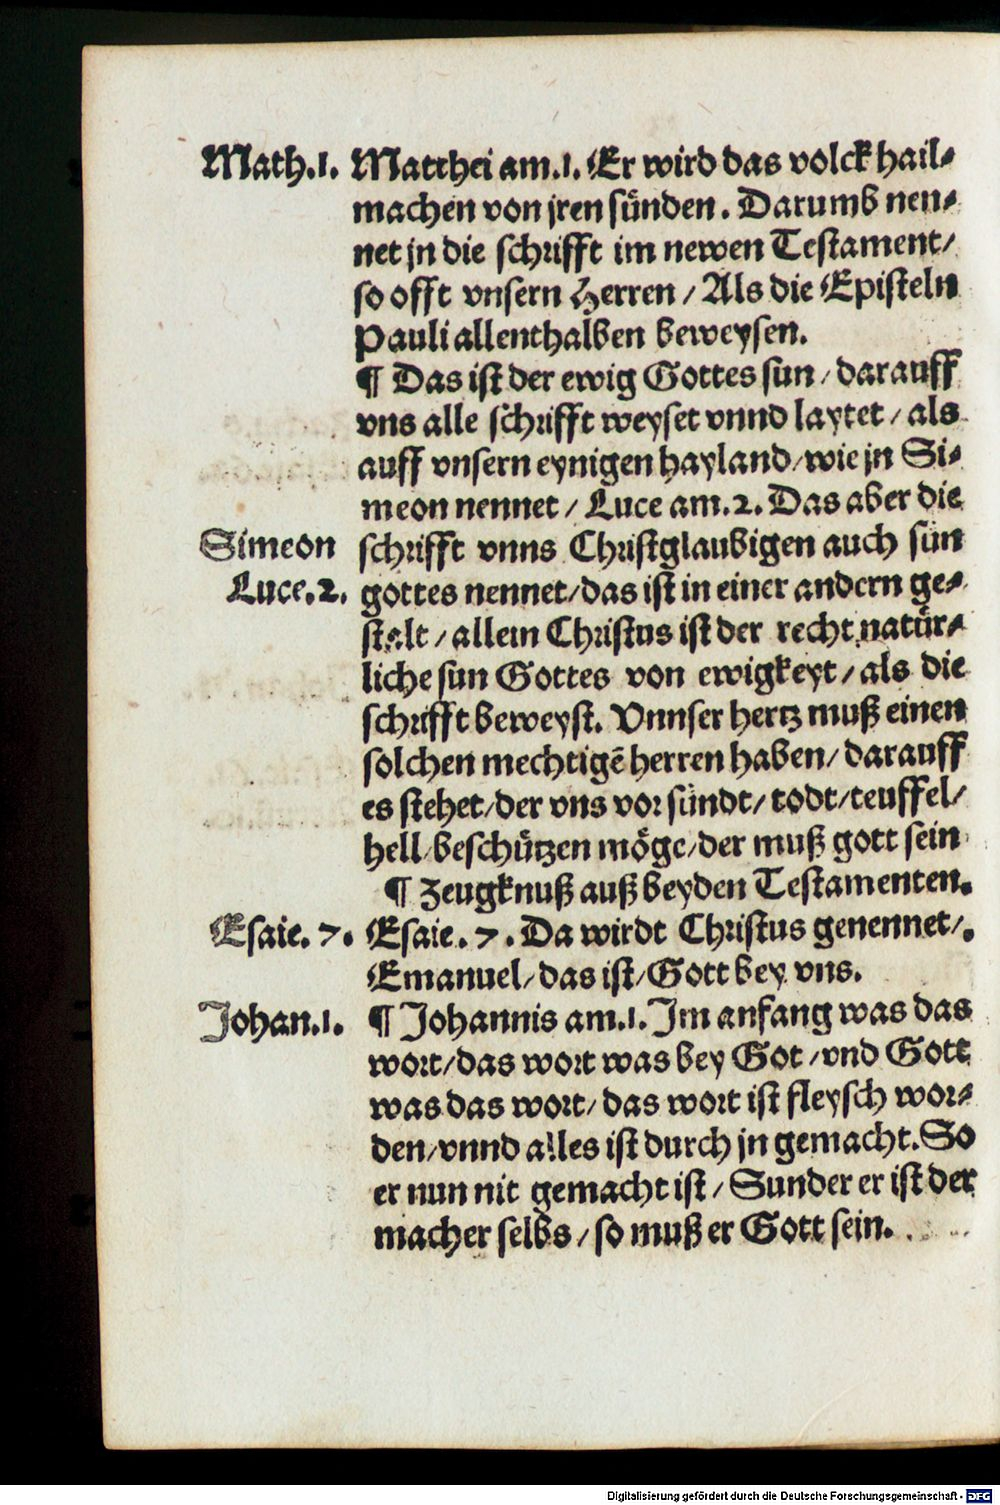 Math.1. Matthei am.1. Er wird das volck hail⸗
machen von jren sünden. Darumb nen⸗
net jn die schrifft im newen Testament/
so offt vnsern Herren / Als die Episteln
Pauli allenthalben beweysen.
¶ Das ist der ewig Gottes sun / darauff
vns alle schrifft weyset vnnd laytet / als
auff vnsern eynigen hayland/wie jn Si⸗
meon nennet / Luce am.2. Das aber die
Simeon schrifft vnns Christglaubigen auch sün
Luce.2. gottes nennet/das ist in einer andern ge⸗
stalt / allein Christus ist der recht natür⸗
liche sun Gottes von ewigkeyt / als die
schrifft beweyst. Vnnser hertz muß einen
solchen mechtigē herren haben/ darauff
es stehet/der vns vor sündt/ todt/teuffel/
hell/beschützen möge/der muß gott sein
¶ Zeugknuß auß beyden Testamenten.
Esaie. 7. Esaie. 7. Da wirdt Christus genennet/.
Emanuel/das ist/Gott bey vns.
Johan.1. ¶ Johannis am.1. Im anfang was das
wort/das wort was bey Got /vnd Gott
was das wort/ das wort ist fleysch wor⸗
den/vnnd alles ist durch jn gemacht. So
er nun nit gemacht ist / Sunder er ist der
macher selbs / so muß er Gott sein.
Digitalisierung gefördert durch die Deutsche Forschungsgemeinschaft - DFG